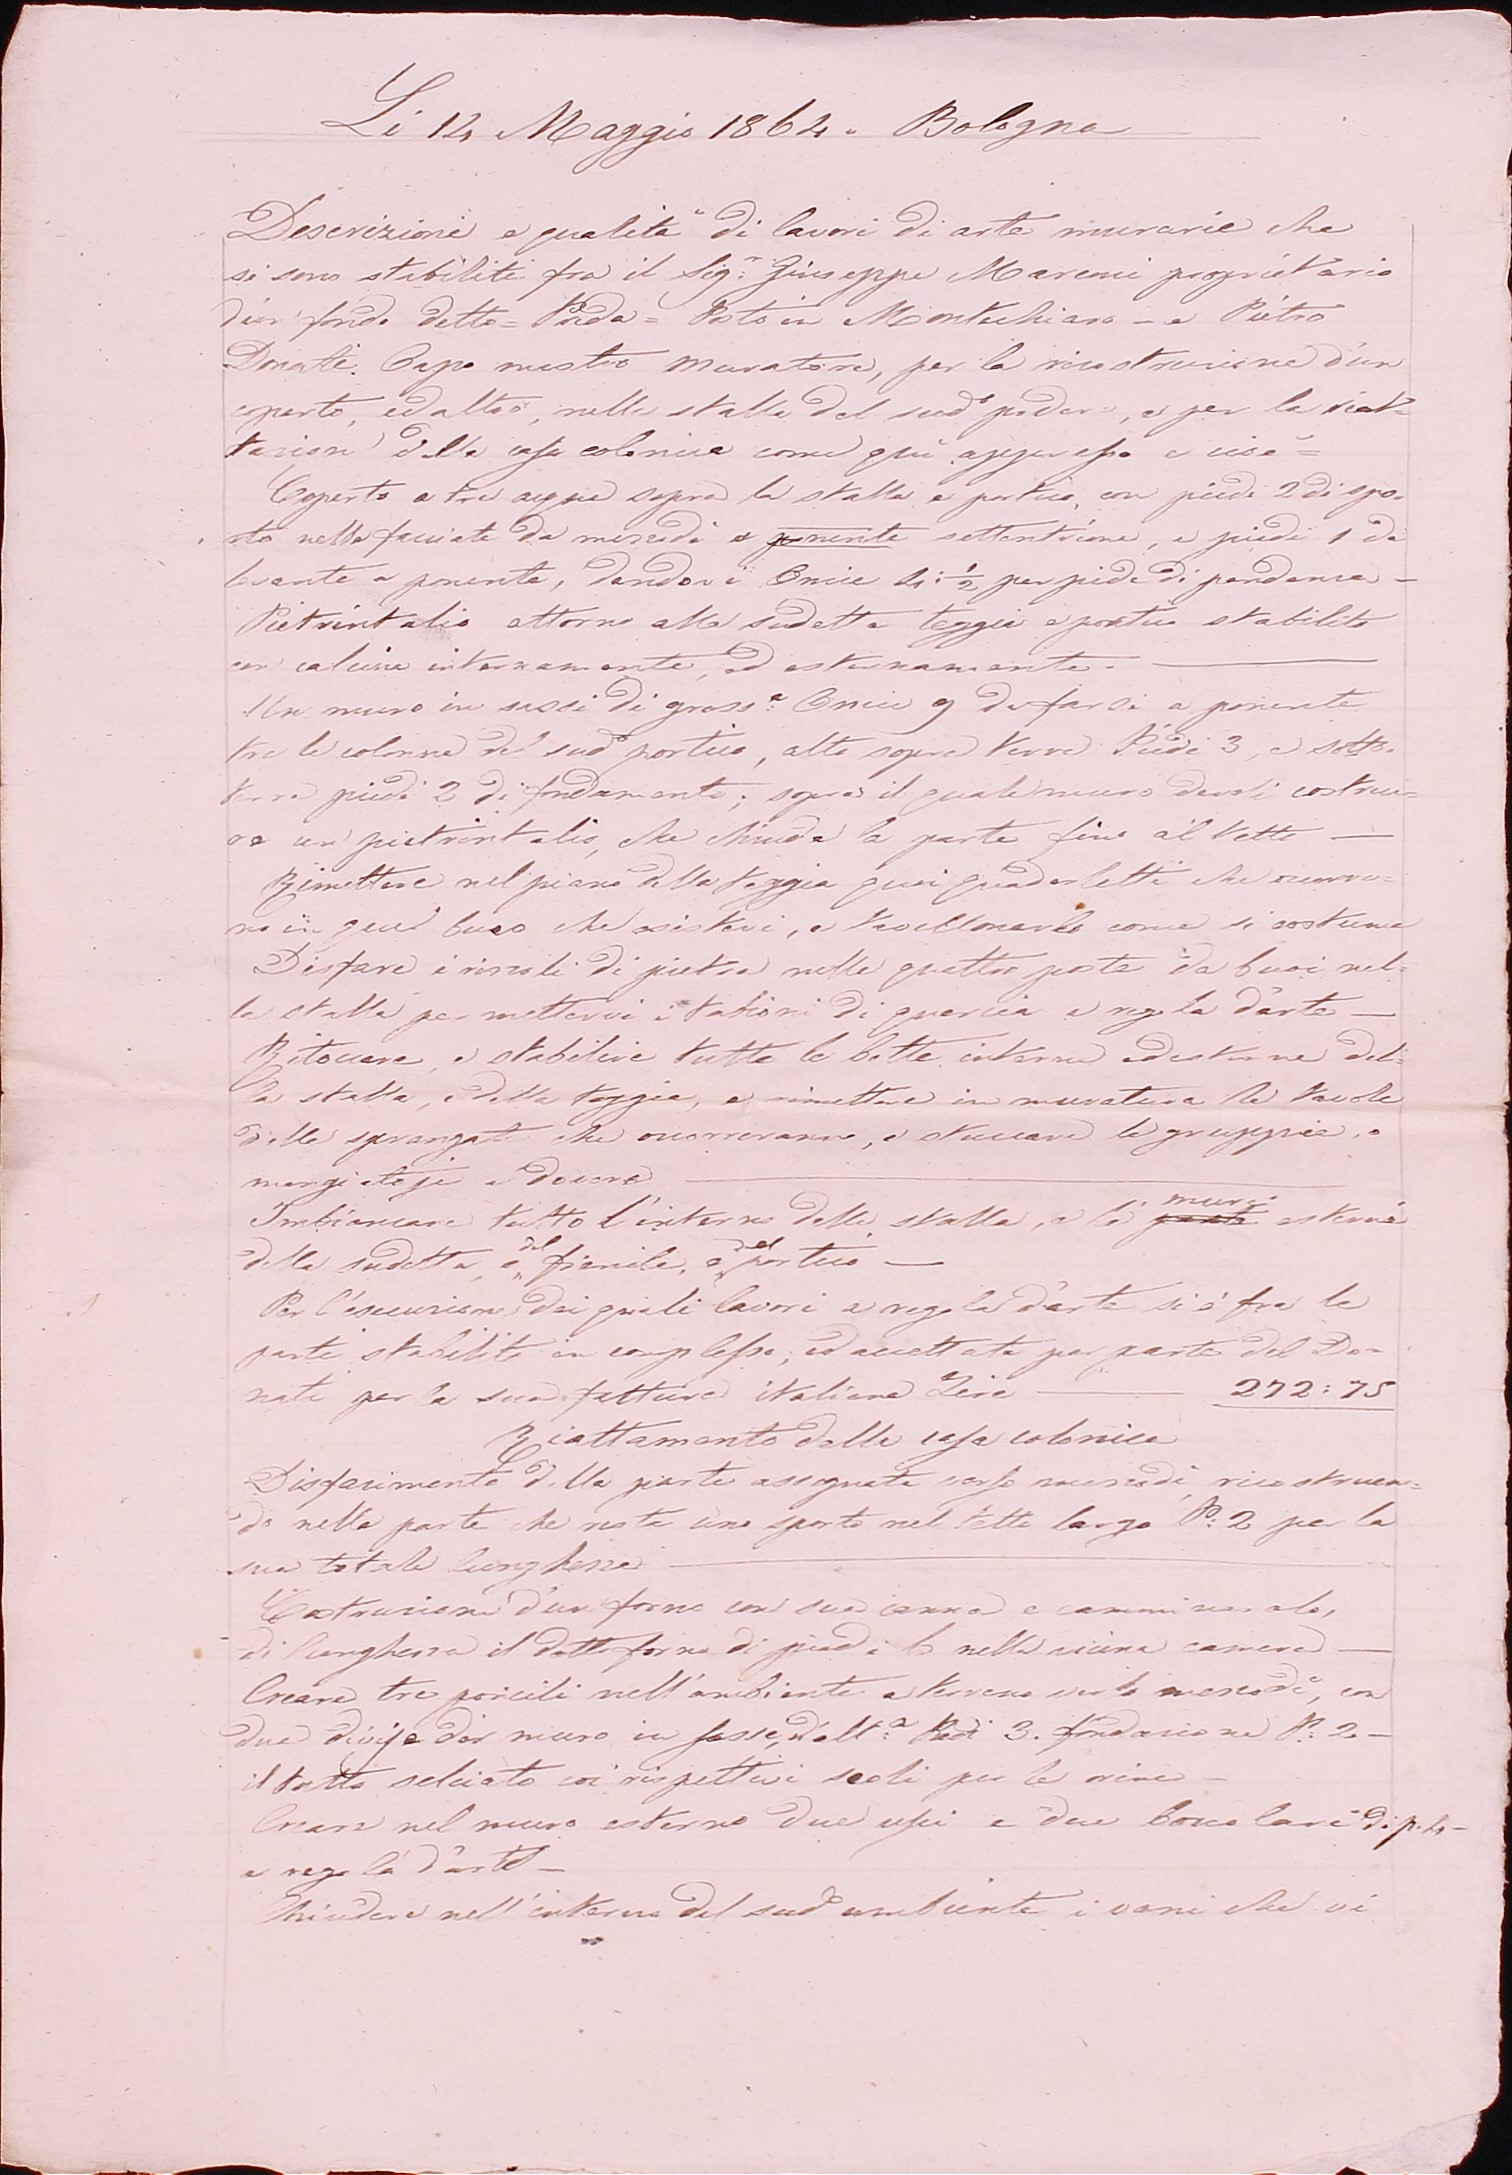 Li 14 Maggio 1864. Bologna
Descrizione e qualità di lavori di arte murarie che
si sono stabiliti fra il Sig.r Giuseppe Marconi proprietario
d'un fondo detto = = Posto in Montechiaro - e Pietro
Donati. Capo mastro muratore, per la ricostruzione d'un
coperto, ed altro, nella stalla del sud.o podere, e per la riat=
tazione della casa colonica come qui appresso e cioè =
Coperto a tre acque sopra la stalla e portico, con piedi 2 di spo-
rto nelle facciate da mezzodì e ponente settentrione, e piedi 1 da
levante a ponente, dandovi Oncie 4:½ per piede di pendenza -
Pietrintalio attorno alla sudetta teggia e portico stabilito
con calcina internamente, ed esternamente. -
Un muro in sassi di gross.a Oncie 9 da farsi a ponente
tra le colonne del sud.o portico, alto sopra terra Piedi 3, e sotto-
terra piedi 2 di fondamento; sopra il quale muro devesi costrui-
re un pietrintalio, che chiuda la parte fino al tetto -
Rimettere nel piano della teggia quei quaderletti che occorro-
no in quel buco che esistevi, e tavellonarlo come si costuma
Disfare i rizzoli di pietra nelle quattro poste da buoi nel-
la stalla per mettervi i tavoloni di quercia a regola d'arte -
Ritoccare, e stabilire tutte le botte interne ed esterne del-
la stalla, e della teggia, e rimettere in muratura le tavole
delle sprangate che occorreranno, e stuccare le gruppie, e
mangiatoje a dovere -
Imbiancare tutto l'interno della stalla, e le parte muri esterni
della sudetta, e del fienile, e del portico -
Per l'esecuzione dei quali lavori a regola d'arte si è fra le
parti stabilito in complesso, ed accettata per parte del Do-
nati per la sua fattura italiane Lire - 272:75
Riattamento della casa colonica
Disfacimento della parte assegnata verso mezzodì, ricostruen-
do nella parte che resta uno sporto nel tetto largo P: 2 per la
sua totale lunghezza -
Costruzione d'un forno con sua canna e
di lunghezza il detto forno di piedi 6 nella vicina camera -
Creare tre porcili nell'ambiente a terreno verso mezzodì, con
due muro in sasso, d'alt.a Piedi 3. fondazione P: 2 -
il tutto selciato coi rispettivi scoli per le orine -
Creare nel muro esterno due usci e due di p. 4 -
a regola d'arte -
Chiudere nell'interno del sud.o ambiente i vani che vi